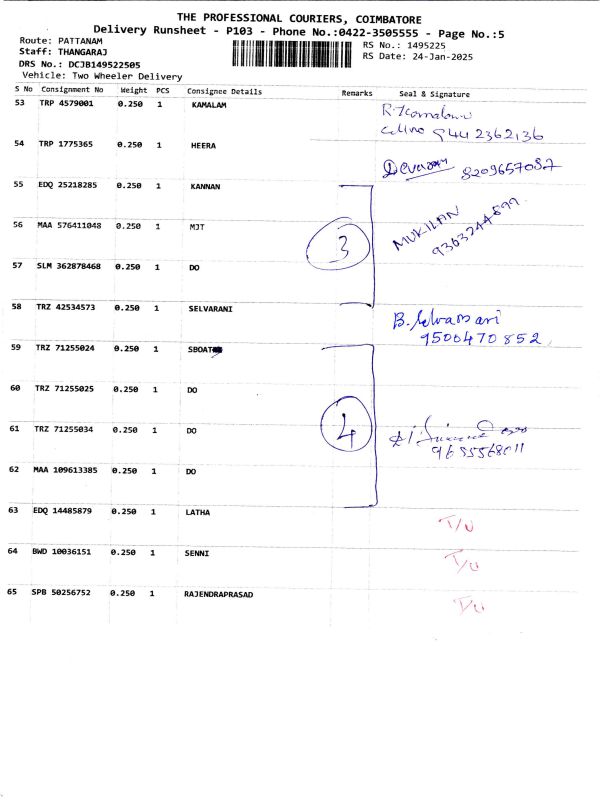 THE PROFESSIONAL COURIERS, COIMBATORE
Delivery Runsheet - P103 - Phone No.:0422-3505555 - Page No.:5
Route: PATTANAM
RS No.: 1495225
Staff: THANGARAJ
RS Date: 24-Jan-2025
DRS No.: DCJB149522505
Vehicle: Two Wheeler Delivery
S No Consignment No Weight PCS Consignee Details Remarks Seal & Signature
53 TRP 4579001 0.250 1 KAMALAM
9442362136
54 TRP 1775365 0.250 1 HEERA
8209657087
55 EDQ 25218285 0.250 1 KANNAN
56 MAA 576411048 0.250 1 MJT 3 MUKILAN
57 SLM 362878468 0.250 1 DO
58 TRZ 42534573 0.250 1 SELVARANI B. Selvarani
9500470852
59 TRZ 71255024 0.250 1 SBOAT
60 TRZ 71255025 0.250 1 DO
61 TRZ 71255034 0.250 1 DO 4
9655568011
62 MAA 109613385 0.250 1 DO
63 EDQ 14485879 0.250 1 LATHA T/U
64 BWD 10036151 0.250 1 SENNI T/U
65 SPB 50256752 0.250 1 RAJENDRAPRASAD T/U